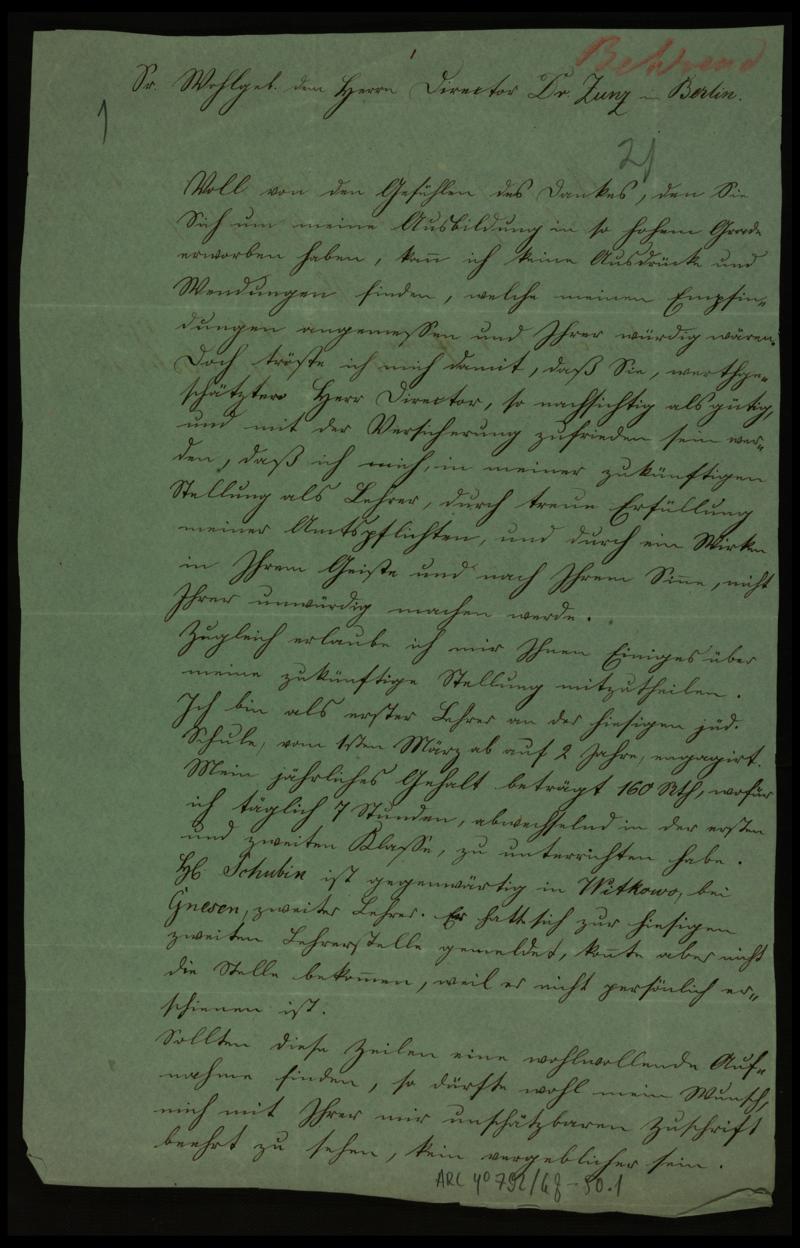 Behrend
1
Sr. Wohlgeb. dem Herrn Director Dr. Zunz in Berlin.
1
21
Voll von den Gefühlen des Dankes, den Sie
Sich um meine Ausbildung in so hohem Grade
erworben haben, kann ich keine Ausdrücke und
Wendungen finden, welche meinen Empfin-
dungen angemessen und Ihrer würdig wären.
Doch tröste ich mich damit, daß Sie, werthge-
schätzter Herr Director, so nachsichtig als gütig,
und mit der Versicherung zufrieden sein wer-
den, daß ich mich, in meiner zukünftigen
Stellung als Lehrer, durch treue Erfüllung
meiner Amtspflichten, und durch ein Wirken
in Ihrem Geiste und nach Ihrem Sinne, nicht
Ihrer unwürdig machen werde.
Zugleich erlaube ich mir Ihnen Einiges über
meine zukünftige Stellung mitzutheilen.
Ich bin als erster Lehrer an der hiesigen jüd.
Schule, vom 1sten März ab auf 2 Jahre, engagirt.
Mein jährliches Gehalt beträgt 160 Rth, wofür
ich täglich 7 Stunden, abwechselnd in der ersten
und zweiten Klasse, zu unterrichten habe.
Schubin ist gegenwärtig in Witkowo, bei
Gnesen, zweiter Lehrer. Er hatte sich zur hiesigen
zweiten Lehrerstelle gemeldet, konnte aber nicht
die Stelle bekommen, weil er nicht persönlich er-
schienen ist.
Sollten diese Zeilen eine wohlwollende Auf-
nahme finden, so dürfte wohl mein Wunsch,
mich mit Ihrer mir unschätzbaren Zuschrift
beehrt zu sehen, kein vergeblicher sein.
ARC 4° 792/G8-50.1